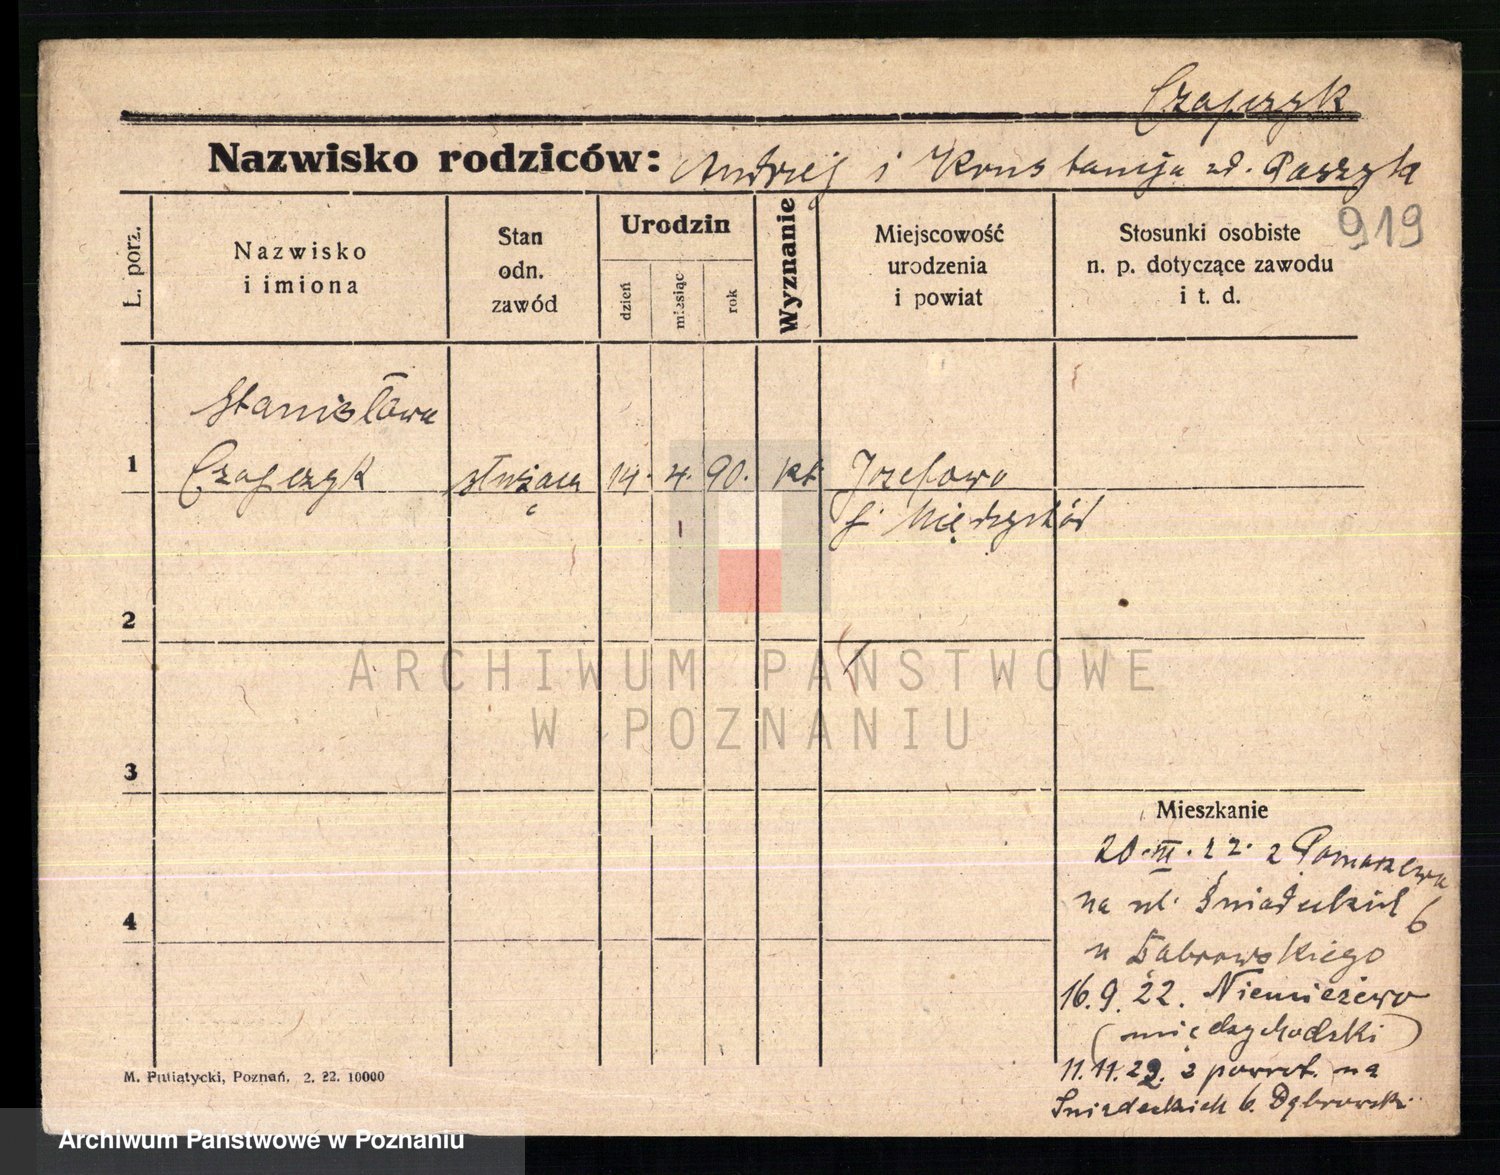 Czapczyk
Nazwisko rodziców: Andrzej i Konstancja zd. Paszyk
919
L. porz.
Nazwisko
i imiona
Stan
odn.
zawód
Urodzin
dzień
miesiąc
rok
Wyznanie
Miejscowość
urodzenia
i powiat
Stosunki osobiste
n. p. dotyczące zawodu
i t. d.
Stanisława
1 Czapczyk służąca 14. 4. 90. kt. Józefowo
Międzychód
2
ARCHIWUM PAŃSTWOWE
W POZNANIU
3
Mieszkanie
20.III.22. z Pomarzewa
na ul. Śniadeckich 6
u Dabrowskiego
4
16.9.22. Niemierzewo
(międzychodzki)
11.11.22. z powrot. na
Śniadeckich 6. Dąbrowski
M. Putiatycki, Poznań, 2. 22. 10000
Archiwum Państwowe w Poznaniu